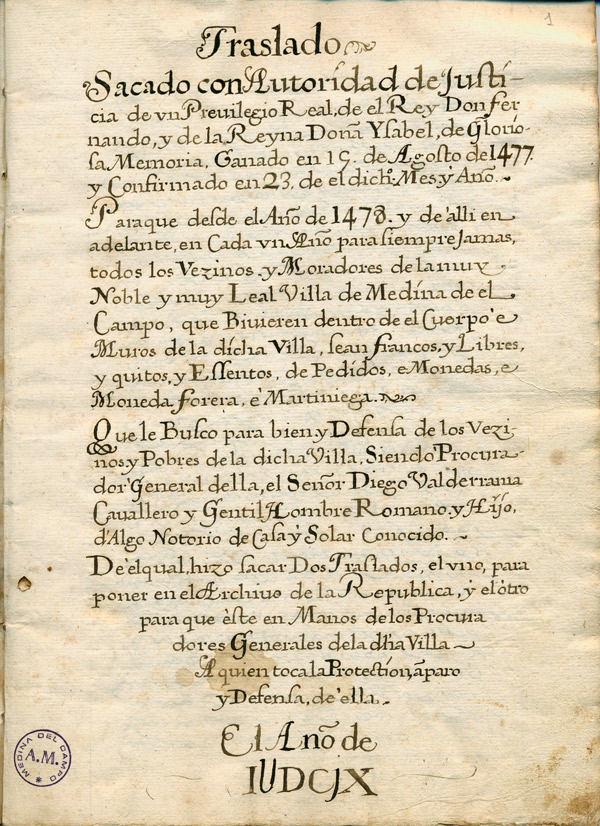 1
Traslado
Sacado con Autoridad de Justi-
cia de vn Previlegio Real, de el Rey Don fer
nando, y de la Reyna Doña Ysabel, de Glorio-
sa Memoria. Ganado en 19. de Agosto de 1477.
y Confirmado en 23. de el dichº. Mes y Año.~
Para que desde el Año de 1478. y de alli en
adelante, en Cada vn Año para siempre Jamas,
todos los Vezinos. y Moradores de la muy
Noble y muy Leal Villa de Medina de el
Campo, que Bivieren dentro de el Cuerpo e
Muros de la dicha Villa, sean francos, y Libres,
y quitos, y Essentos, de Pedidos, e Monedas, e
Moneda forera, e Martiniega.
Que le Busco para bien y Defensa de los Vezi-
nos y Pobres de la dicha Villa, Siendo Procura-
dor General della, el Señor Diego Valderrama
Cavallero y Gentil Hombre Romano. y Hijo,
d'Algo Notorio de Casa y Solar Conocido.~
De el qual, hizo sacar Dos Traslados, el vno, para
poner en el Archivo de la Republica, y el otro
para que èste en Manos de los Procura
dores Generales de la dha Villa~
A quien toca la Protection, amparo
y Defensa, de ella.~
El Año de
IUDCJX
MEDINA DEL CAMPO
A.M.